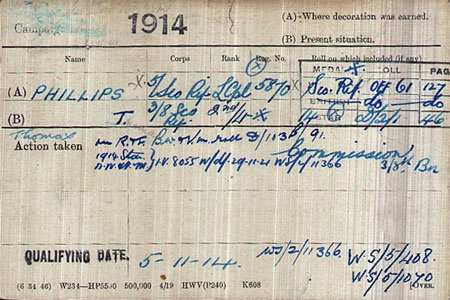 1914
(A)—Where decoration was earned.
Campaign:
(B) Present situation.
Corps Rank Reg. No. Roll on which included (if any)
MEDAL ROLL PAGE
(A) PHILLIPS 5/Sco Rif L Cpl 5870 X Sco. Rif. Off 61 127
do do
(B) T. 3/8 Sco Rif 2nd/Lt X 14 X 2/1 46
Thomas
Action taken 91.
1914 Star
IV. 8055 W/d/ 29-11-21 WS/2/11366
Commission
3/8th Bn
QUALIFYING DATE. 5-11-14. WS/2/11366 WS/5/408.
WS/5/1070
(6 34 46) W234—HP5590 500,000 4/19 HWV(P240) K608 OVER.